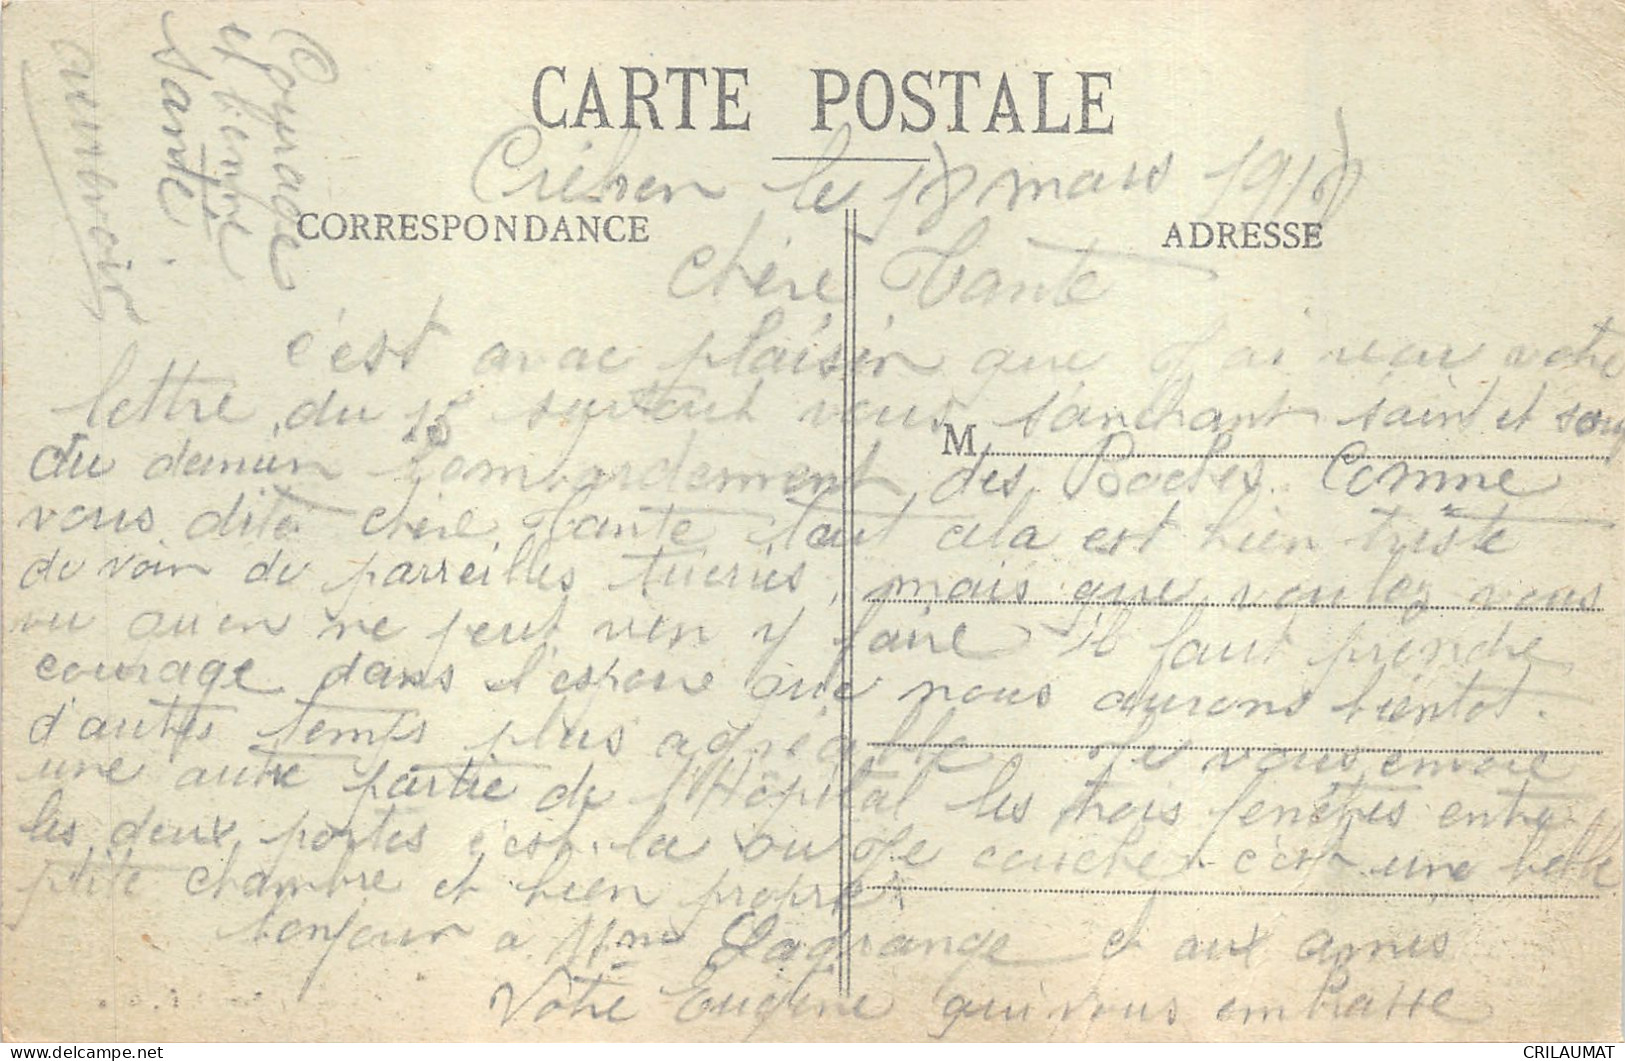 CARTE POSTALE
le 18 mars 1918
CORRESPONDANCE ADRESSE
Chère Tante
c'est avac plaisir que J'ai recu votre
lettre du 15 surtout vous sanchant saint et
du bombardement des Boches. Comme
M
vous dite chère Tante tout cela est bien triste
de voir de parreilles tueries, mais que voulez vous
vu qu on ne peut rien y faire il faut prendre
courage dans l'espoire que nous aurons bientot.
d'autres temps plus agréable Je vous envoie
une autre partie de l'Hopital les trois fenêtres entre
les deux portes c'est la ou Je couche c'est une belle
ptite chambre et bien propre.
bonjour a Mme Lagrange et aux amis
Votre Eugène qui vous embrasse
Courage
et bonne
santé.
aurevoir
CRILAUMAT